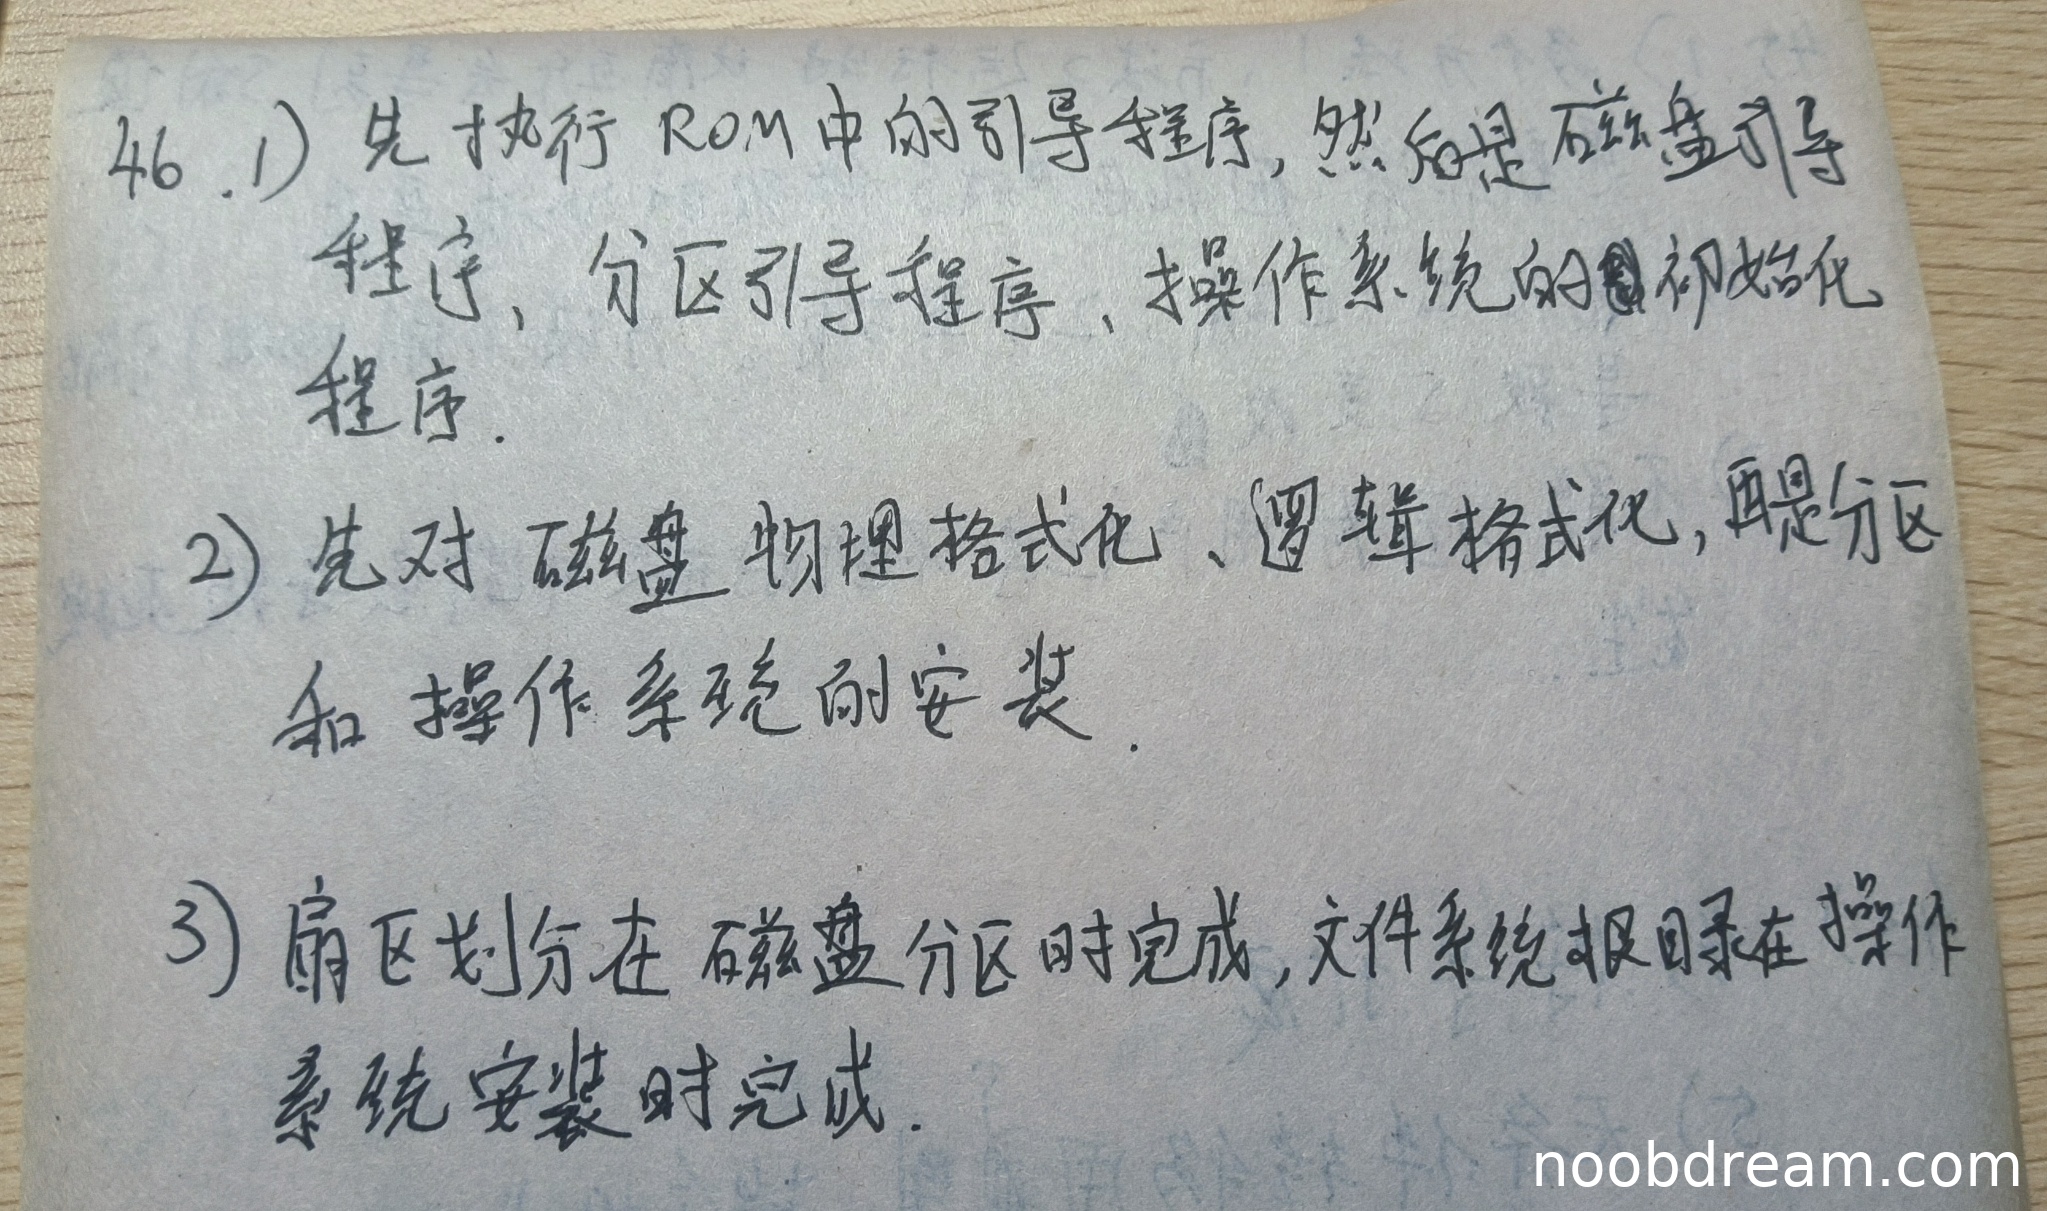 46.1) 先执行ROM中的引导程序,然后是磁盘引导
程序、分区引导程序、操作系统的初始化
程序.
2) 先对磁盘物理格式化、逻辑格式化,再是分区
和操作系统的安装.
3) 扇区划分在磁盘分区时完成,文件系统根目录在操作
系统安装时完成.
noobdream.com